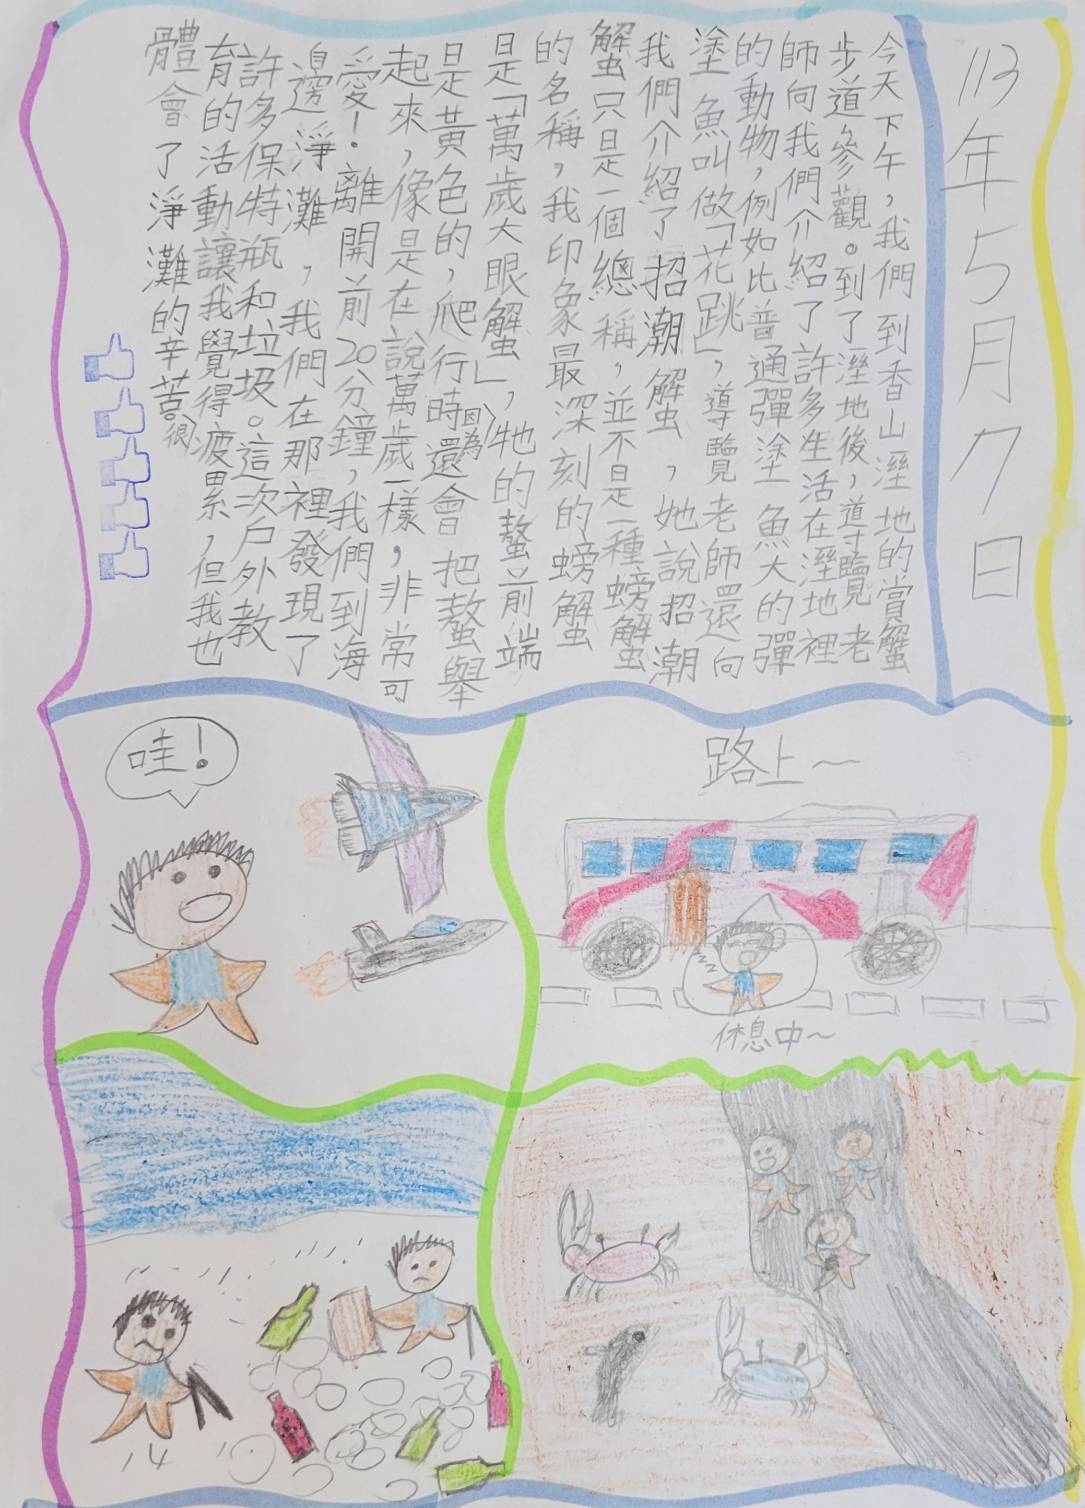 113年5月7日
今天下午，我們到香山溼地的賞蟹
步道參觀。到了溼地後，導覽老
師向我們介紹了許多生活在溼地裡
的動物，例如比普通彈塗魚大的彈
塗魚叫做「花跳」，導覽老師還向
我們介紹了招潮蟹，她說招潮
蟹只是一個總稱，並不是一種螃蟹
的名稱，我印象最深刻的螃蟹
是「萬歲大眼蟹」，因為牠的螯前端
是黃色的，爬行時還會把螯舉
起來，像是在說萬歲一樣，非常可
愛！離開前20分鐘，我們到海
邊淨灘，我們在那裡發現了
許多保特瓶和垃圾。這次戶外教
育的活動讓我覺得很疲累，但我也
體會了淨灘的辛苦。
路上～
休息中～
哇！